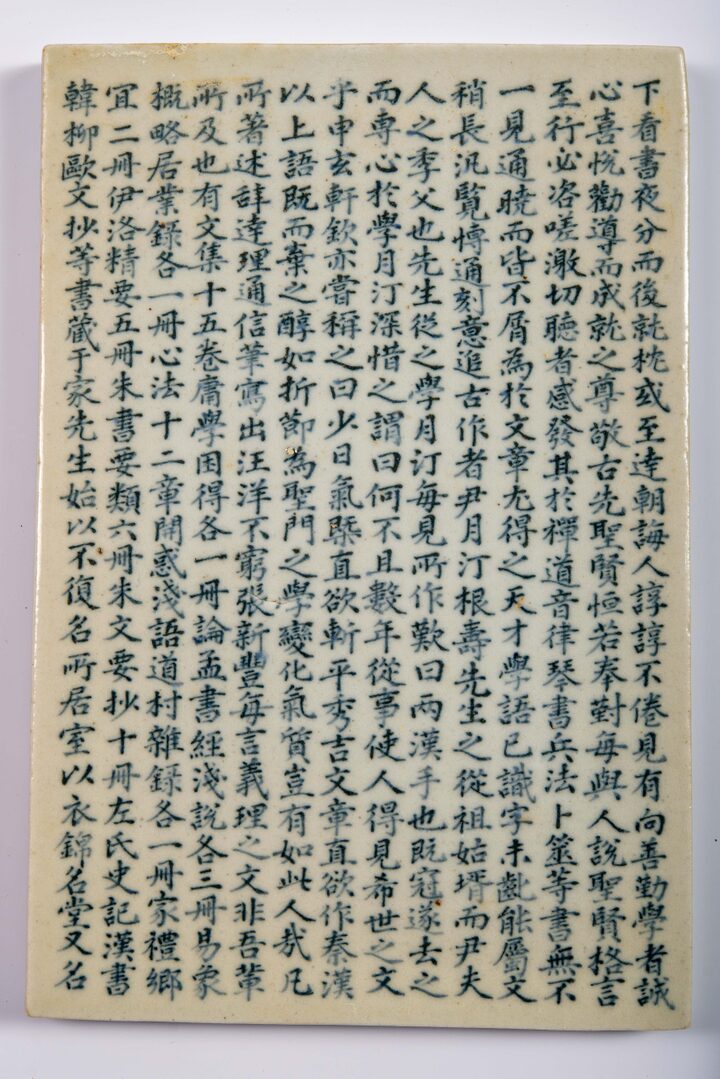 下看書夜分而後就枕或至達朝誨人諄諄不倦見有向善勤學者誠
心喜悅勸導而成就之尊敬古先聖賢恒若奉對每與人說聖賢格言
至行必咨嗟激切聽者感發其於禪道音律琴書兵法卜筮等書無不
一見通曉而皆不屑為於文章尤得之天才學語已識字未齔能屬文
稍長汎覽博通刻意追古作者尹月汀根壽先生之從祖姑壻而尹夫
人之季父也先生從之學月汀每見所作歎曰兩漢手也既冠遂去之
而專心於學月汀深惜之謂曰何不且數年從事使人得見希世之文
乎申玄軒欽亦嘗稱之曰少日氣槩直欲斬平秀吉文章直欲作秦漢
以上語既而棄之醇如折節為聖門之學變化氣質豈有如此人哉凡
所著述辞達理通信筆寫出汪洋不窮張新豐每言義理之文非吾輩
所及也有文集十五卷庸學困得各一冊論孟書經淺說各三冊易象
概略居業錄各一冊心法十二章開惑淺語道村雜錄各一冊家禮鄉
宜二冊伊洛精要五冊朱書要類六冊朱文要抄十冊左氏史記漢書
韓柳歐文抄等書藏于家先生始以不復名所居室以衣錦名堂又名